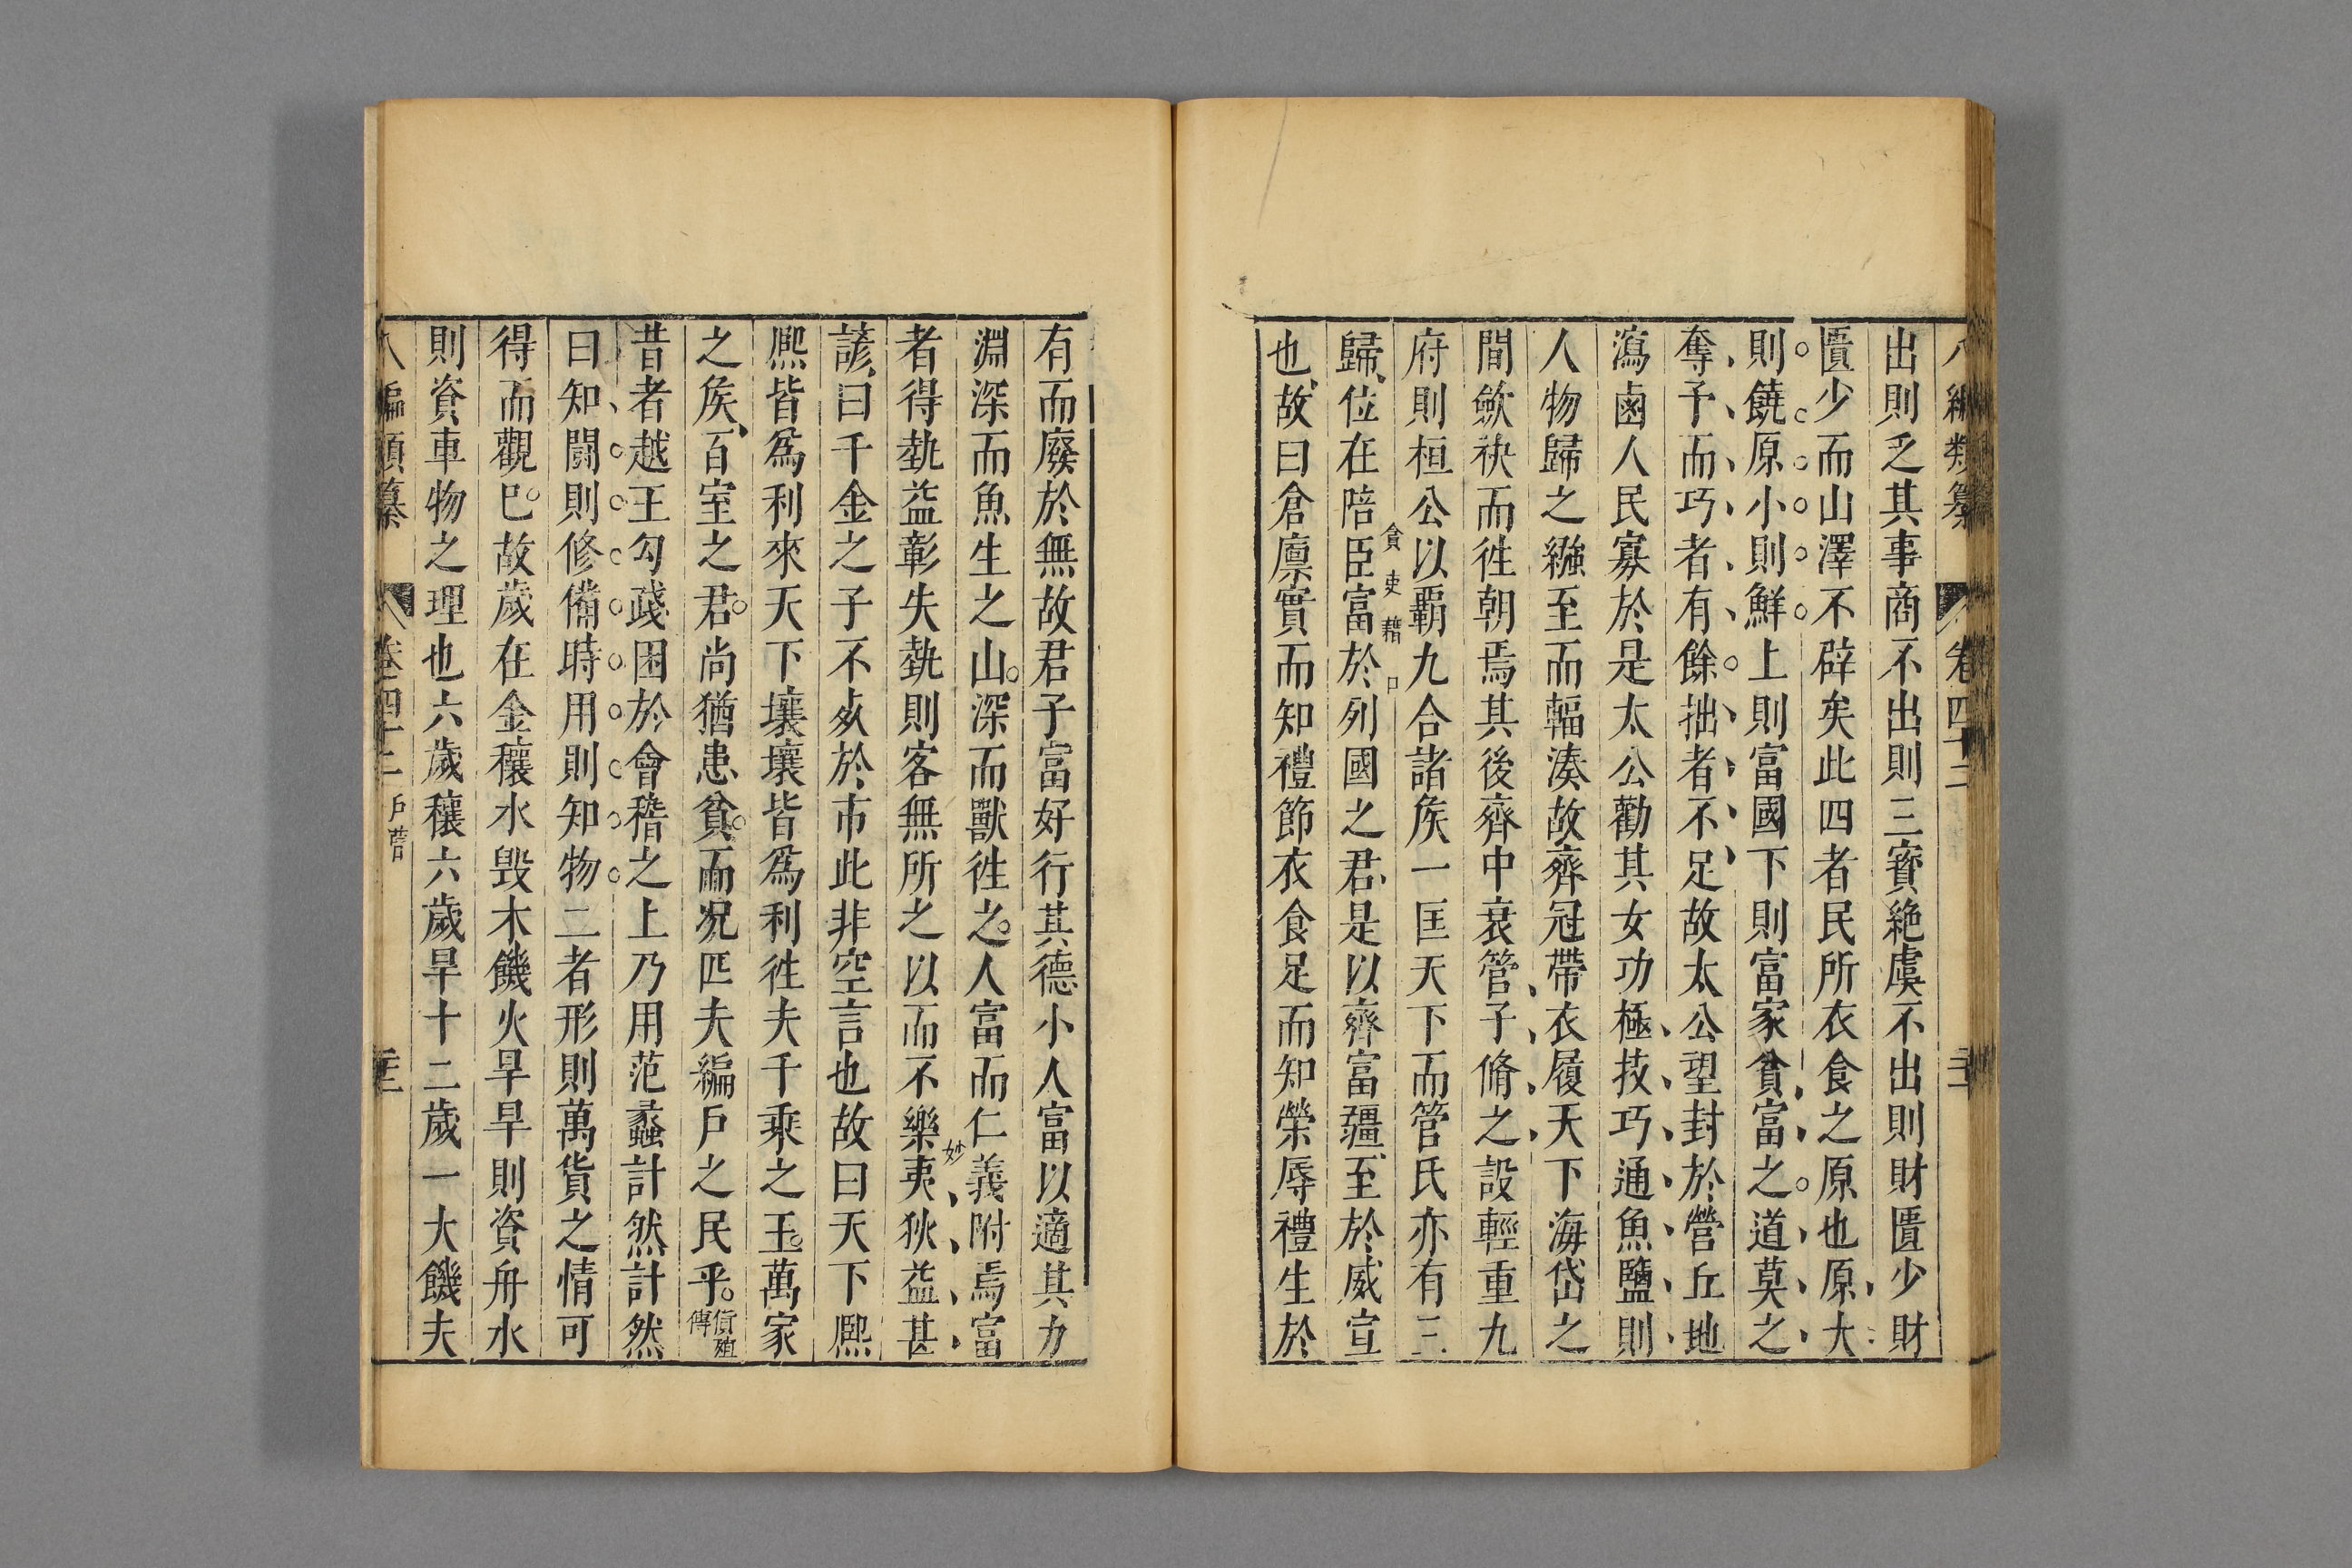 八編類纂 卷四十二 二十一
出則乏其事商不出則三寳絶虞不出則財匱少財
匱少而山澤不辟矣此四者民所衣食之原也原大
則饒原小則鮮上則富國下則富家貧富之道莫之
奪予而巧者有餘拙者不足故太公望封於營丘地
瀉鹵人民寡於是太公勸其女功極技巧通魚鹽則
人物歸之繦至而輻湊故齊冠帶衣履天下海岱之
間歛袂而徃朝焉其後齊中衰管子脩之設輕重九
府則桓公以覇九合諸矦一匡天下而管氏亦有三
貪吏藉口
歸位在陪臣富於列國之君是以齊富疆至於威宣
也故曰倉廩實而知禮節衣食足而知榮辱禮生於
有而廢於無故君子富好行其德小人富以適其力
淵深而魚生之山深而獸徃之人富而仁義附焉富
妙
者得埶益彰失埶則客無所之以而不樂夷狄益甚
諺曰千金之子不死於市此非空言也故曰天下熙
熙皆爲利來天下壤壤皆爲利徃夫千乘之王萬家
之矦百室之君尚猶患貧而況匹夫編戸之民乎貨殖傳
昔者越王勾踐困於會稽之上乃用范蠡計然計然
曰知鬭則修備時用則知物二者形則萬貨之情可
得而觀巳故歲在金穰水毁木饑火旱旱則資舟水
則資車物之理也六歲穰六歲旱十二歲一大饑夫
八編類纂 卷四十二 戸曹 二十二